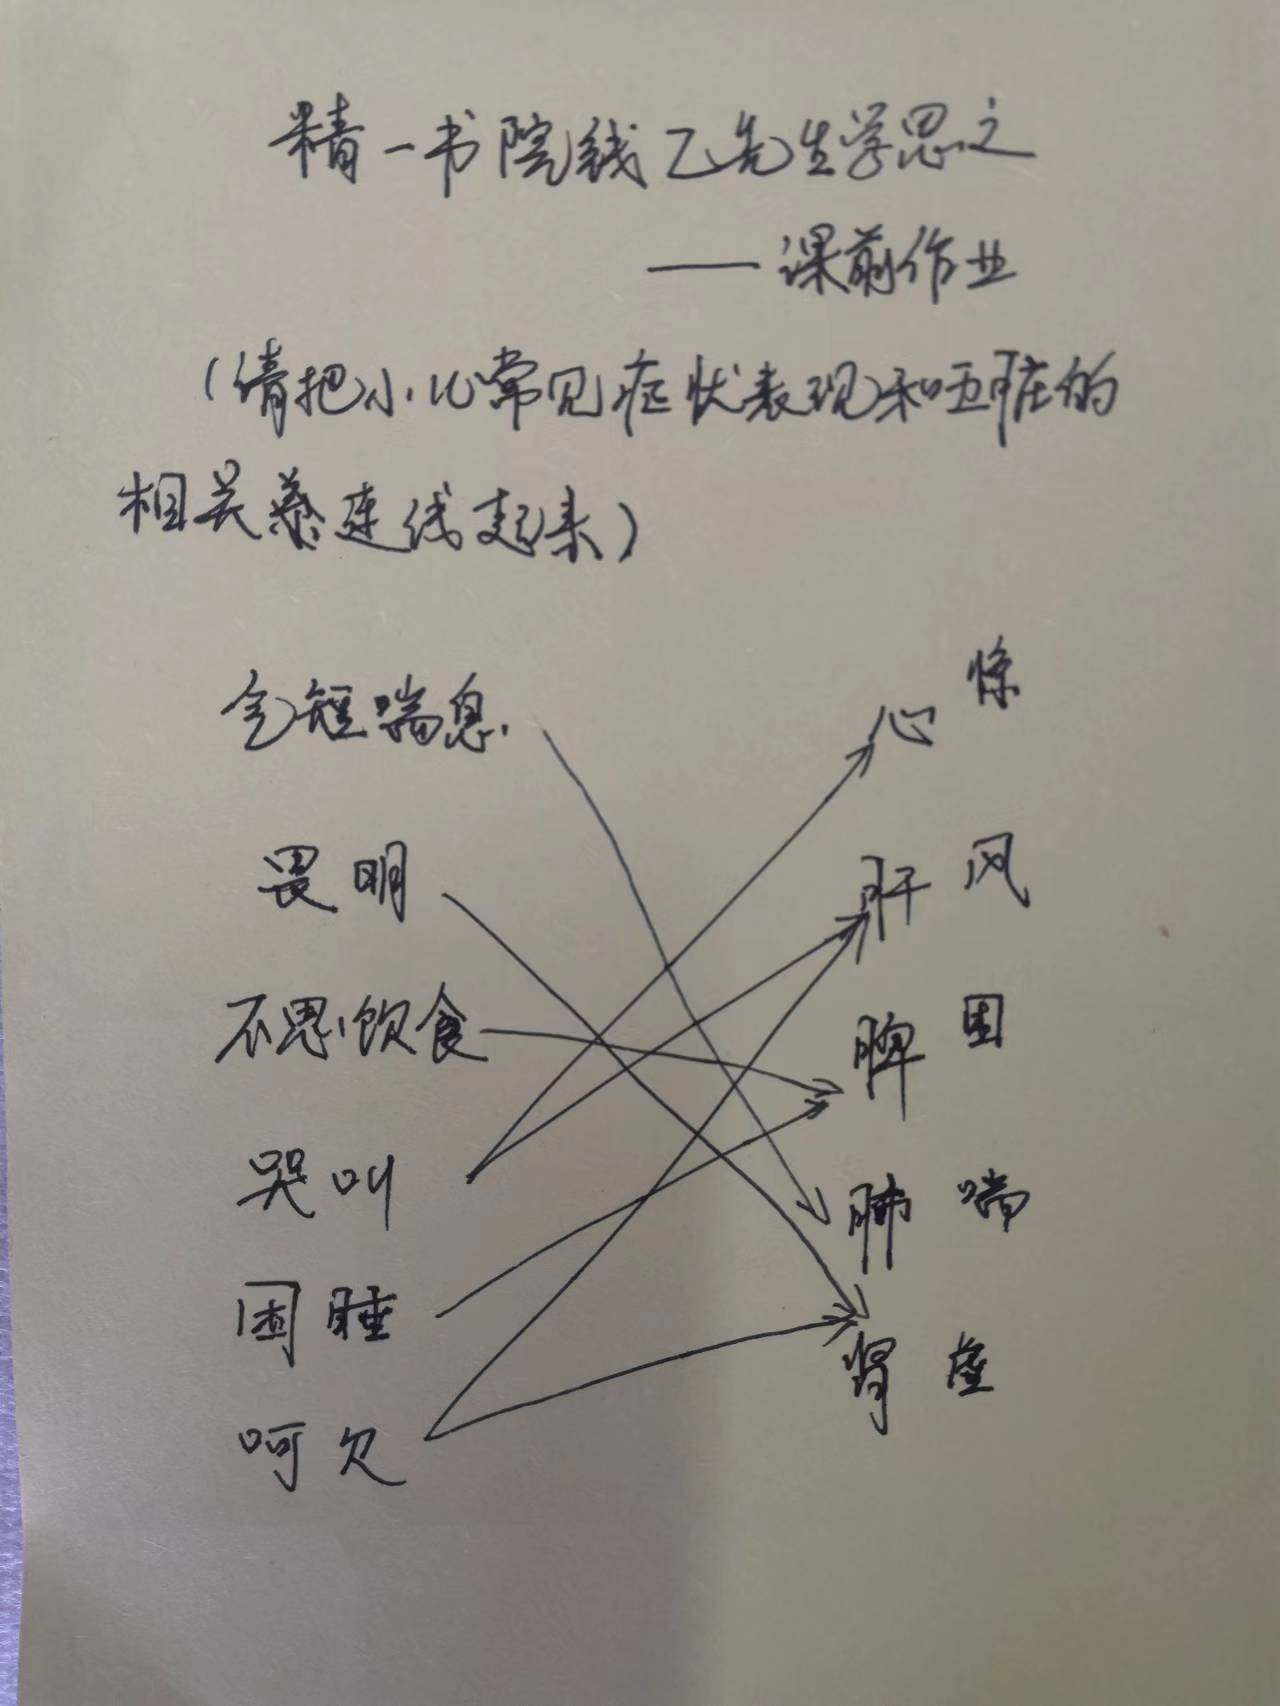 精一书院钱乙先生学思之
——课前作业
(请把小儿常见症状表现和五脏的
相关募连线起来)
气短喘息.
心 惊
畏明
肝 风
不思饮食
脾 困
哭叫
肺 喘
困睡
肾 虚
呵欠